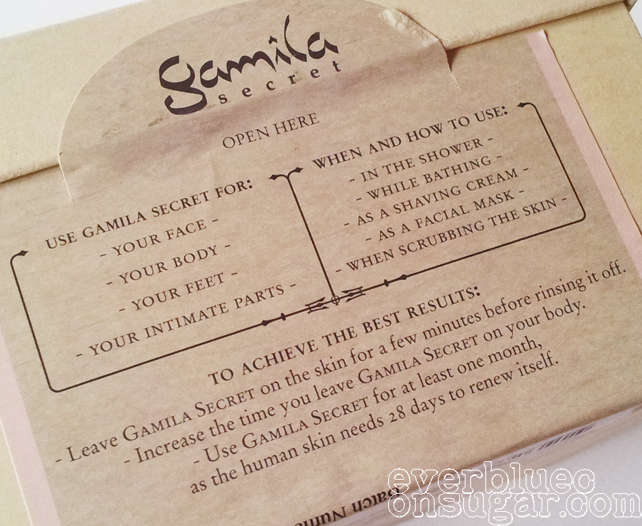 gamila
secret
OPEN HERE
USE GAMILA SECRET FOR:
- YOUR FACE -
- YOUR BODY -
- YOUR FEET -
- YOUR INTIMATE PARTS -
WHEN AND HOW TO USE:
- IN THE SHOWER -
- WHILE BATHING -
- AS A SHAVING CREAM -
- AS A FACIAL MASK -
- WHEN SCRUBBING THE SKIN -
TO ACHIEVE THE BEST RESULTS:
- Leave GAMILA SECRET on the skin for a few minutes before rinsing it off.
- Increase the time you leave GAMILA SECRET on your body.
- Use GAMILA SECRET for at least one month,
as the human skin needs 28 days to renew itself.
Batch
everbluec
onsugar.com